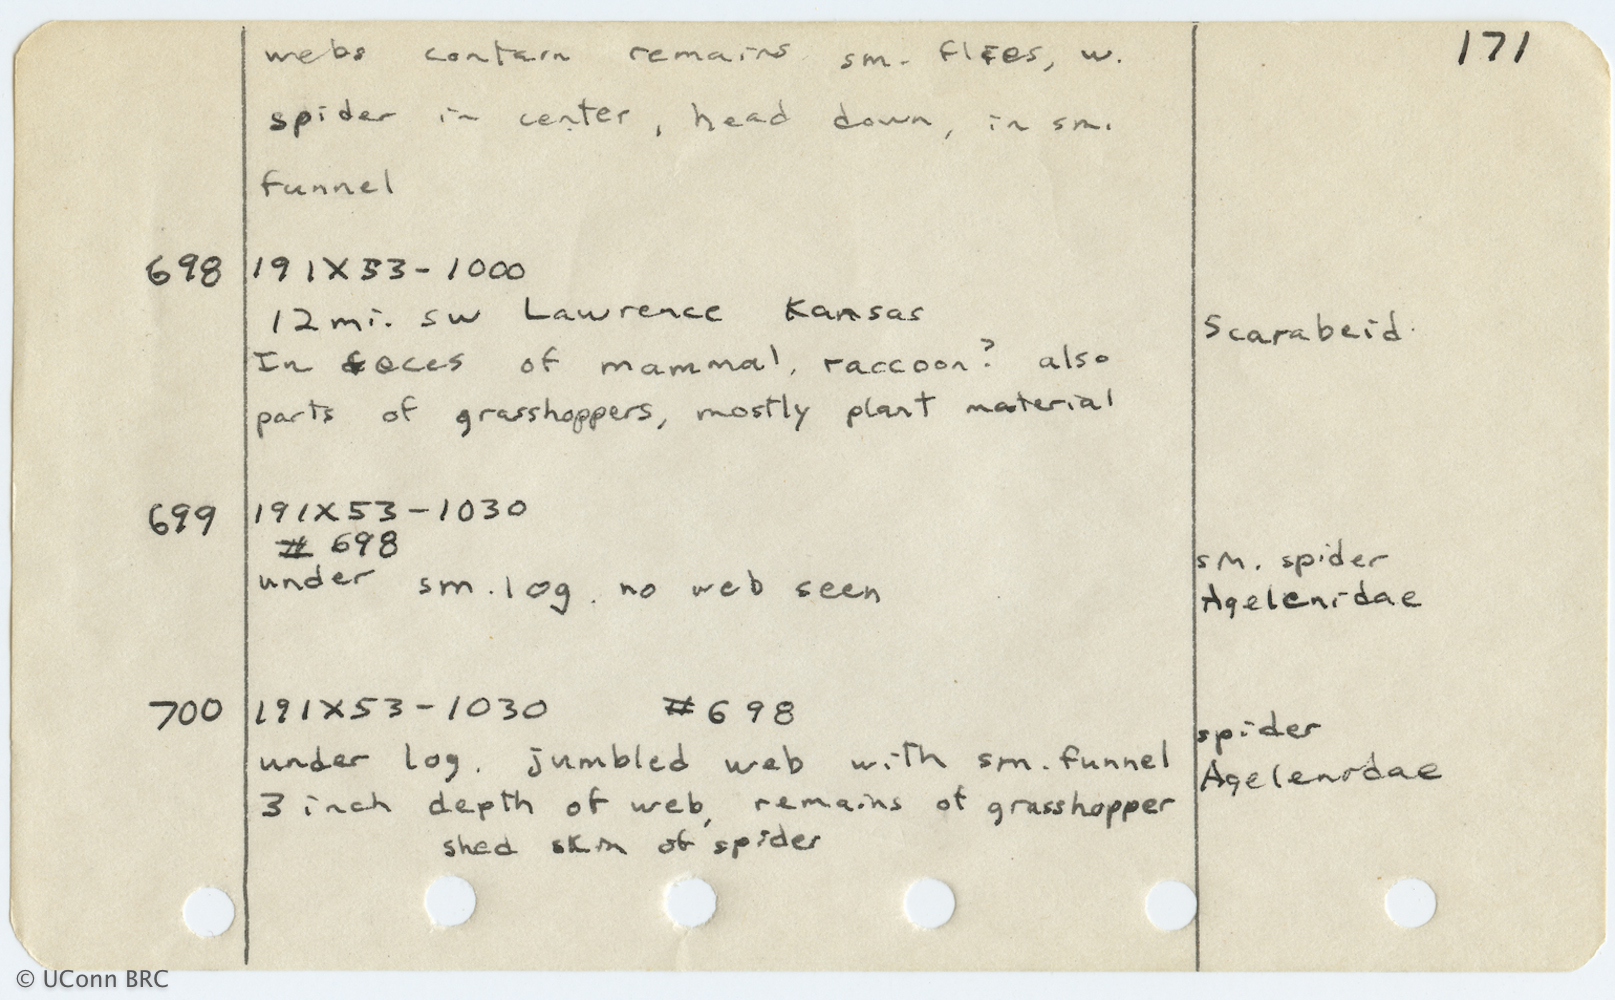 171
webs contain remains sm. flies, w.
spider in center, head down, in sm.
funnel
698 191X53-1000
12mi. SW Lawrence Kansas
Scarabeid.
In feces of mammal, raccoon? also
parts of grasshoppers, mostly plant material
699 191X53-1030
# 698
under sm. log. no web seen
sm. spider
Agelenidae
700 191X53-1030 # 698
spider
under log. jumbled web with sm. funnel
Agelenidae
3 inch depth of web, remains of grasshopper
shed skin of spider
© UConn BRC